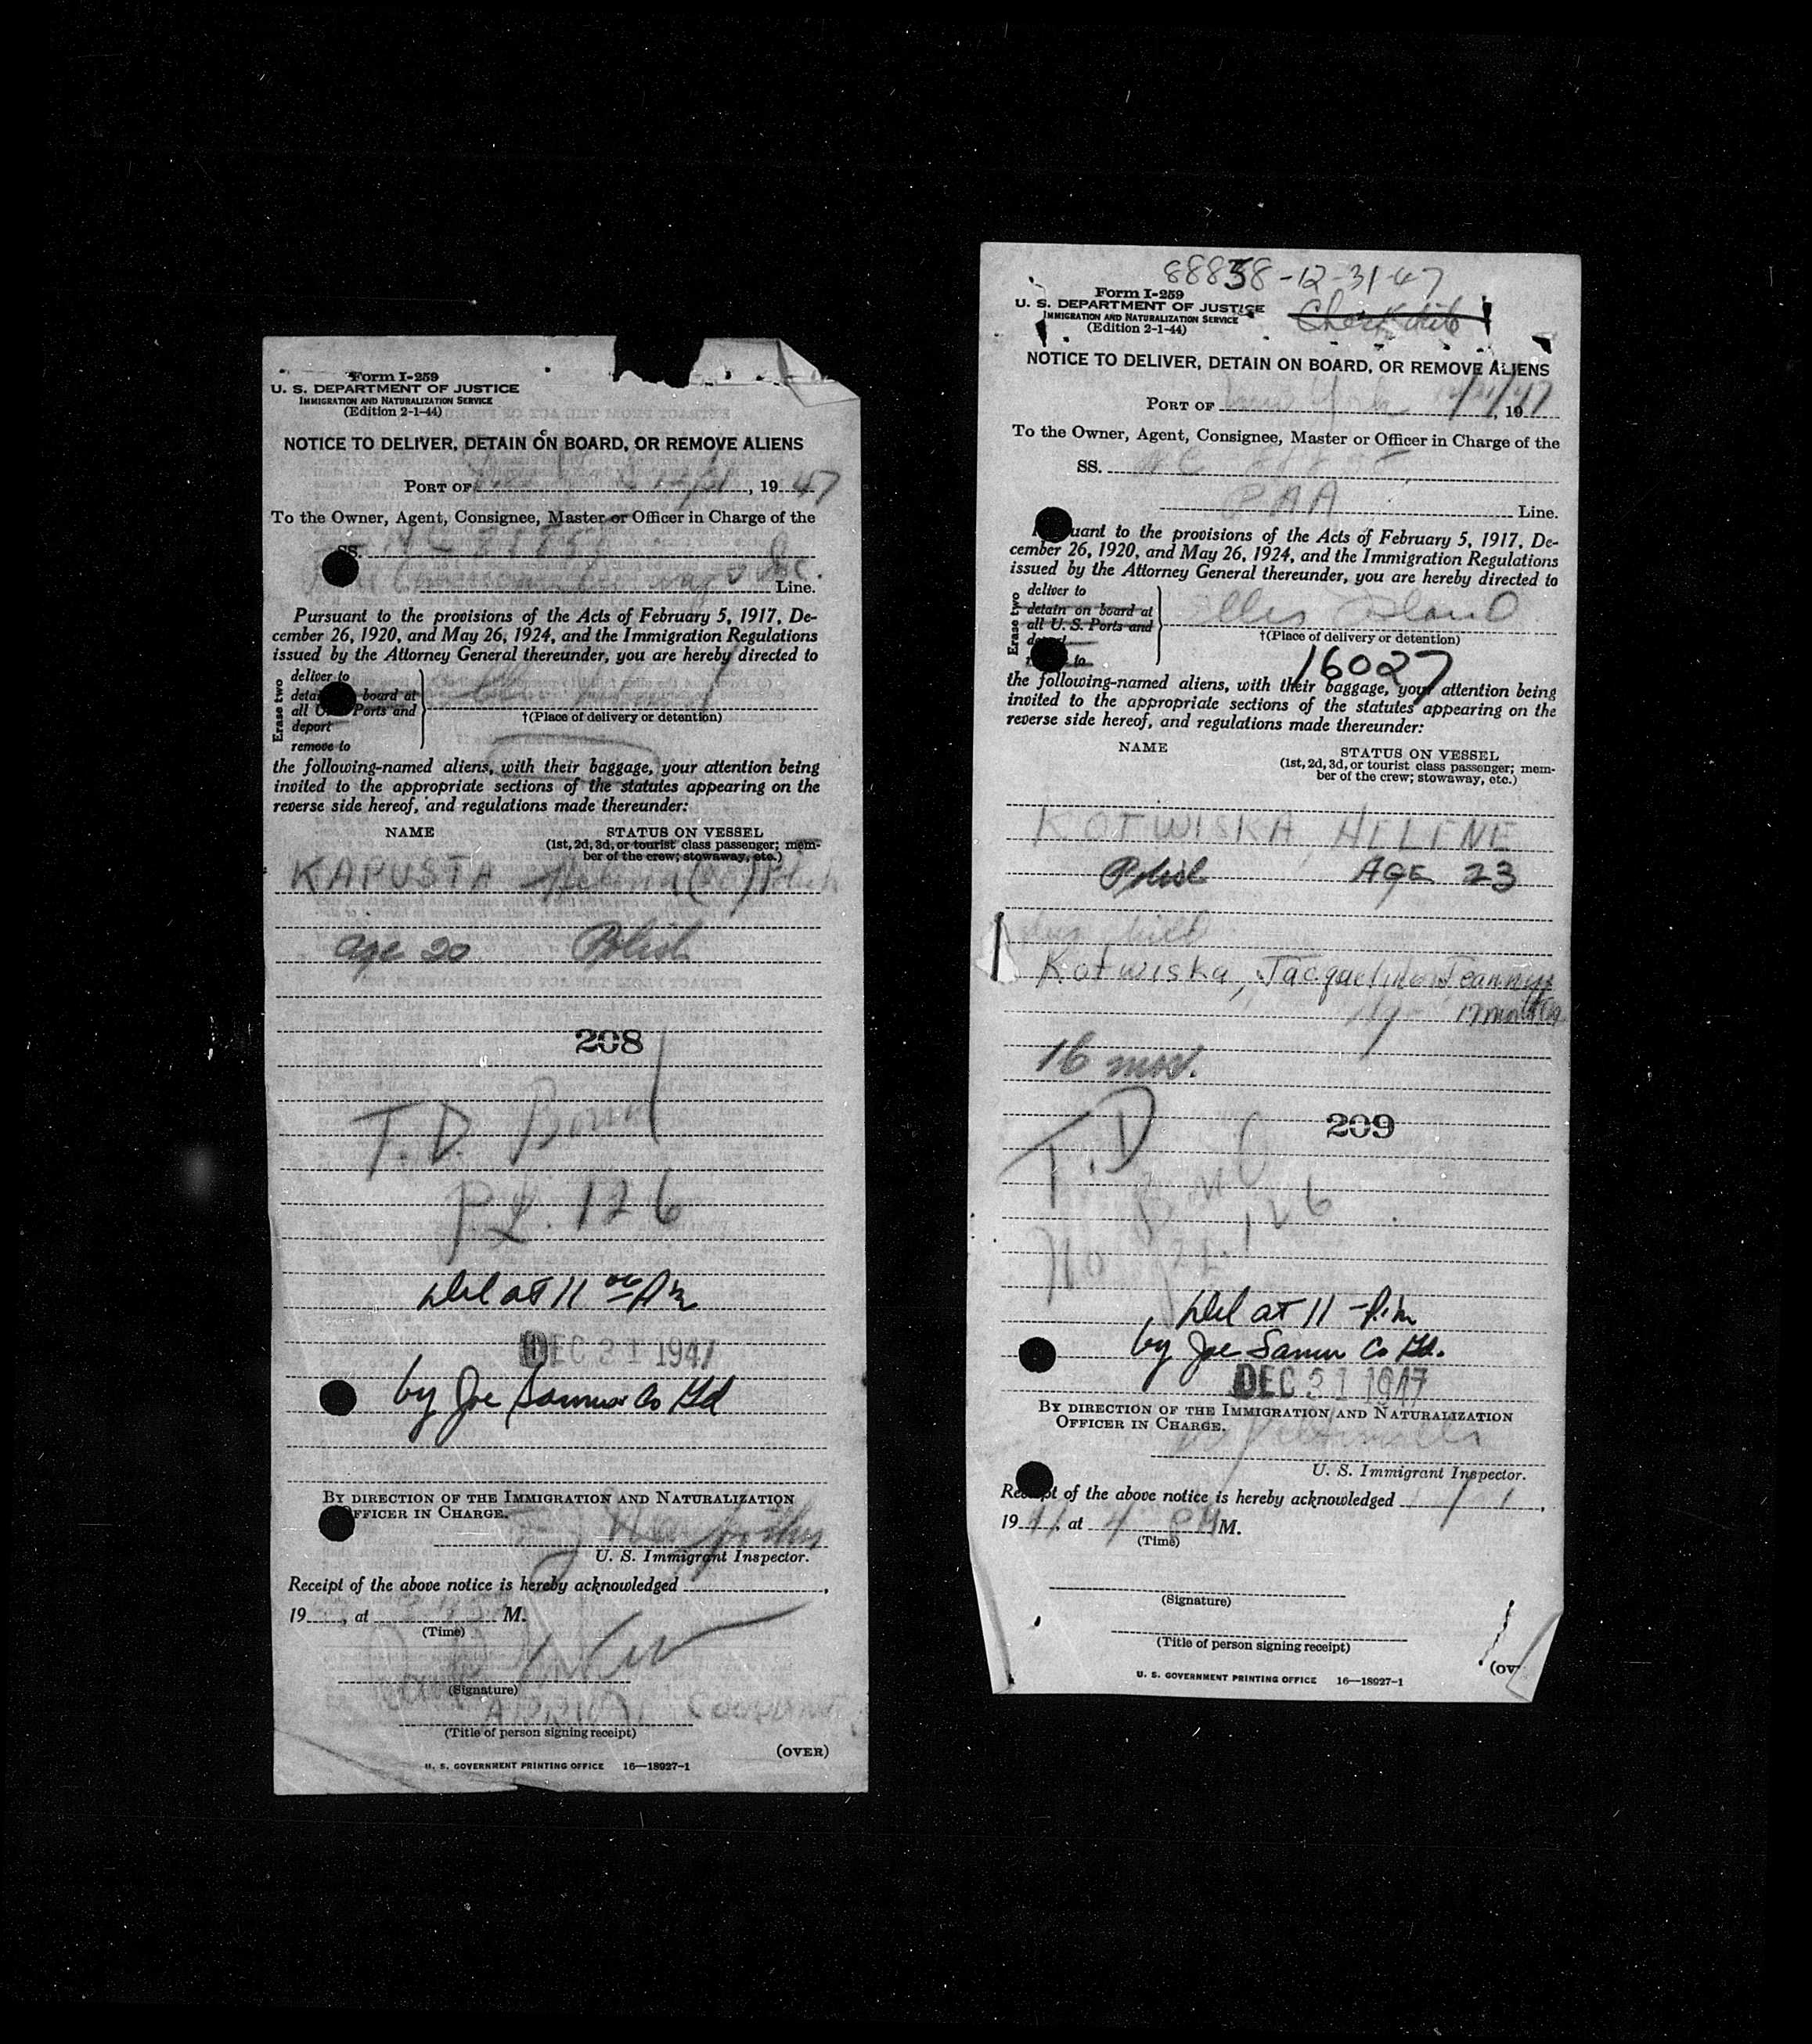 Form I-259
U. S. DEPARTMENT OF JUSTICE
IMMIGRATION AND NATURALIZATION SERVICE
(Edition 2-1-44)
NOTICE TO DELIVER, DETAIN ON BOARD, OR REMOVE ALIENS
PORT OF , 19 47
To the Owner, Agent, Consignee, Master or Officer in Charge of the
SS. NC
Line.
Pursuant to the provisions of the Acts of February 5, 1917, De-
cember 26, 1920, and May 26, 1924, and the Immigration Regulations
issued by the Attorney General thereunder, you are hereby directed to
Erase two
deliver to
board at
all Ports and
deport
remove to
†(Place of delivery or detention)
the following-named aliens, with their baggage, your attention being
invited to the appropriate sections of the statutes appearing on the
reverse side hereof, and regulations made thereunder:
NAME STATUS ON VESSEL
(1st, 2d, 3d, or tourist class passenger; mem-
ber of the crew; stowaway, etc.)
KAPUSTA
age 20 Polish
208
T.D. Bond
P.L. 126
Del at 11 00 Am
DEC 31 1947
by Joe Co Gd
BY DIRECTION OF THE IMMIGRATION AND NATURALIZATION
OFFICER IN CHARGE.
U. S. Immigrant Inspector.
Receipt of the above notice is hereby acknowledged ,
19 , at M.
(Time)
(Signature)
(Title of person signing receipt)
(OVER)
U. S. GOVERNMENT PRINTING OFFICE 16—18927-1
88858-12-31-47
Form I-259
U. S. DEPARTMENT OF JUSTICE
IMMIGRATION AND NATURALIZATION SERVICE
(Edition 2-1-44)
NOTICE TO DELIVER, DETAIN ON BOARD, OR REMOVE ALIENS
PORT OF New York , 1947
To the Owner, Agent, Consignee, Master or Officer in Charge of the
SS. NC
PAA Line.
uant to the provisions of the Acts of February 5, 1917, De-
cember 26, 1920, and May 26, 1924, and the Immigration Regulations
issued by the Attorney General thereunder, you are hereby directed to
Erase two
deliver to
detain on board at
all U. S. Ports and
to
Ellis Island
†(Place of delivery or detention)
16027
the following-named aliens, with their baggage, your attention being
invited to the appropriate sections of the statutes appearing on the
reverse side hereof, and regulations made thereunder:
NAME STATUS ON VESSEL
(1st, 2d, 3d, or tourist class passenger; mem-
ber of the crew; stowaway, etc.)
KOTWISKA, HELENE
Polish AGE 23
child
Kotwiska, Jacqueline
17 months
16 mos.
209
T.D
126
Del at 11
by Joe Co Gd.
DEC 31 1947
BY DIRECTION OF THE IMMIGRATION AND NATURALIZATION
OFFICER IN CHARGE.
U. S. Immigrant Inspector.
Receipt of the above notice is hereby acknowledged ,
19 , at 4 PM M.
(Time)
(Signature)
(Title of person signing receipt)
(OV
U. S. GOVERNMENT PRINTING OFFICE 16—18927-1